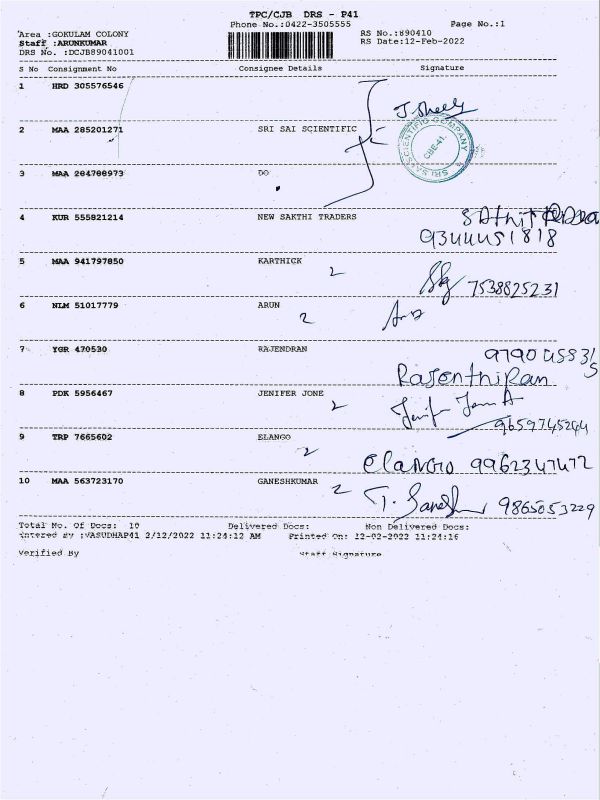 TPC/CJB DRS - P41
Phone No.:0422-3505555 Page No.:1
Area :GOKULAM COLONY RS No.:890410
Staff :ARUNKUMAR RS Date:12-Feb-2022
DRS No. :DCJB89041001
S No Consignment No Consignee Details Signature
1 HRD 305576546
2 MAA 285201271 SRI SAI SCIENTIFIC
SRI SAI SCIENTIFIC COMPANY CBE-41.
3 MAA 284788973 DO
4 KUR 555821214 NEW SAKTHI TRADERS
9344451818
5 MAA 941797850 KARTHICK 2 7538825231
6 NLM 51017779 ARUN 2
7 YGR 470530 RAJENDRAN
Rajenthiran
8 PDK 5956467 JENIFER JONE 2
9659745294
9 TRP 7665602 ELANGO 2 Elango 9962347472
10 MAA 563723170 GANESHKUMAR 2 9865053229
Total No. Of Docs: 10 Delivered Docs: Non Delivered Docs:
Entered By :VASUDHAP41 2/12/2022 11:24:12 AM Printed On: 12-02-2022 11:24:16
Verified By Staff Signature